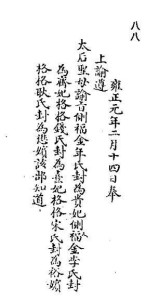 八八
雍正元年二月十四日奉
上諭遵
太后聖母諭旨側福金年氏封為貴妃側福金李氏封
為齊妃格格錢氏封為熹妃格格宋氏封為裕嬪
格格耿氏封為懋嬪該部知道